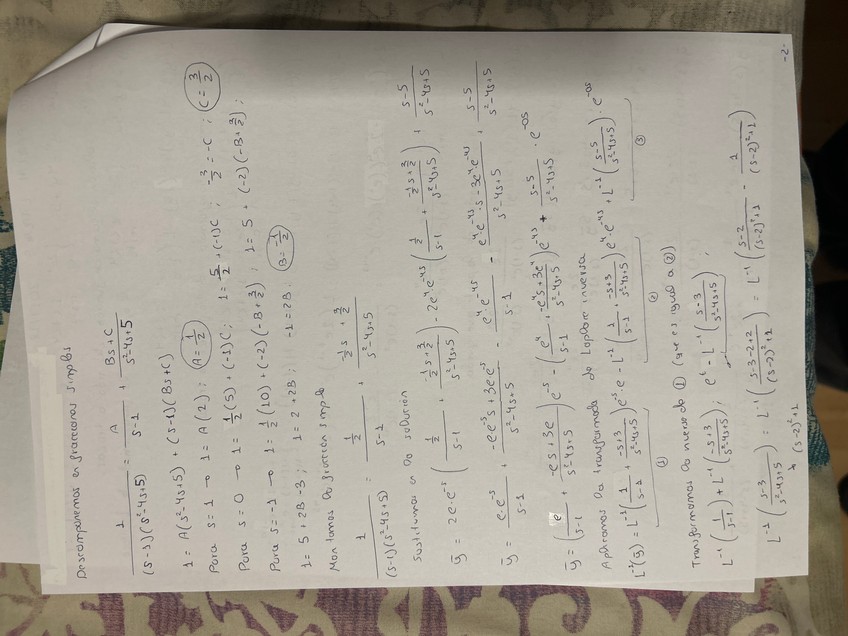 Descomponemos en fracciones simples
1/((s-1)(s²-4s+5)) = A/(s-1) + (Bs+C)/(s²-4s+5)
1 = A(s²-4s+5) + (s-1)(Bs+C)
Para s=1 → 1 = A(2) ; A = 1/2
Para s=0 → 1 = 1/2(5) + (-1)C ; 1 = 5/2 + (-1)C ; -3/2 = -C ; C = 3/2
Para s=-1 → 1 = 1/2(10) + (-2)(-B+3/2) ; 1 = 5 + (-2)(-B+3/2) ;
1 = 5 + 2B - 3 ; 1 = 2 + 2B ; -1 = 2B . B = -1/2
Montamos la fracción simple
1/((s-1)(s²-4s+5)) = (1/2)/(s-1) + (-1/2 s + 3/2)/(s²-4s+5)
Sustituimos en la solución
ȳ = 2e·e^-s ( (1/2)/(s-1) + (-1/2 s + 3/2)/(s²-4s+5) ) - 2e⁴e^-4s ( (1/2)/(s-1) + (-1/2 s + 3/2)/(s²-4s+5) ) + (s-5)/(s²-4s+5)
ȳ = e·e^-s/(s-1) + (-ee^-s s + 3ee^-s)/(s²-4s+5) - e⁴e^-4s/(s-1) - (e⁴·e^-4s·s - 3e⁴e^-4s)/(s²-4s+5) + (s-5)/(s²-4s+5)
ȳ = ( e/(s-1) + (-es+3e)/(s²-4s+5) ) e^-s - ( e⁴/(s-1) + (-e⁴s+3e⁴)/(s²-4s+5) ) e^-4s + (s-5)/(s²-4s+5) · e^-0s
Aplicamos la transformada de Laplace inversa
L⁻¹(ȳ) = L⁻¹( 1/(s-1) + (-s+3)/(s²-4s+5) ) e^-s·e - L⁻¹( 1/(s-1) + (-s+3)/(s²-4s+5) ) e⁴·e^-4s + L⁻¹( (s-5)/(s²-4s+5) ) · e^-0s
① ② ③
Transformamos de nuevo de ① (que es igual a ②)
L⁻¹( 1/(s-1) ) + L⁻¹( (-s+3)/(s²-4s+5) ) ; e^t - L⁻¹( (s-3)/(s²-4s+5) ) ;
L⁻¹( (s-3)/(s²-4s+5) ) = L⁻¹( (s-3-2+2)/((s-2)²+1) ) = L⁻¹( (s-2)/((s-2)²+1) - 1/((s-2)²+1) )
(s-2)²+1
-2-